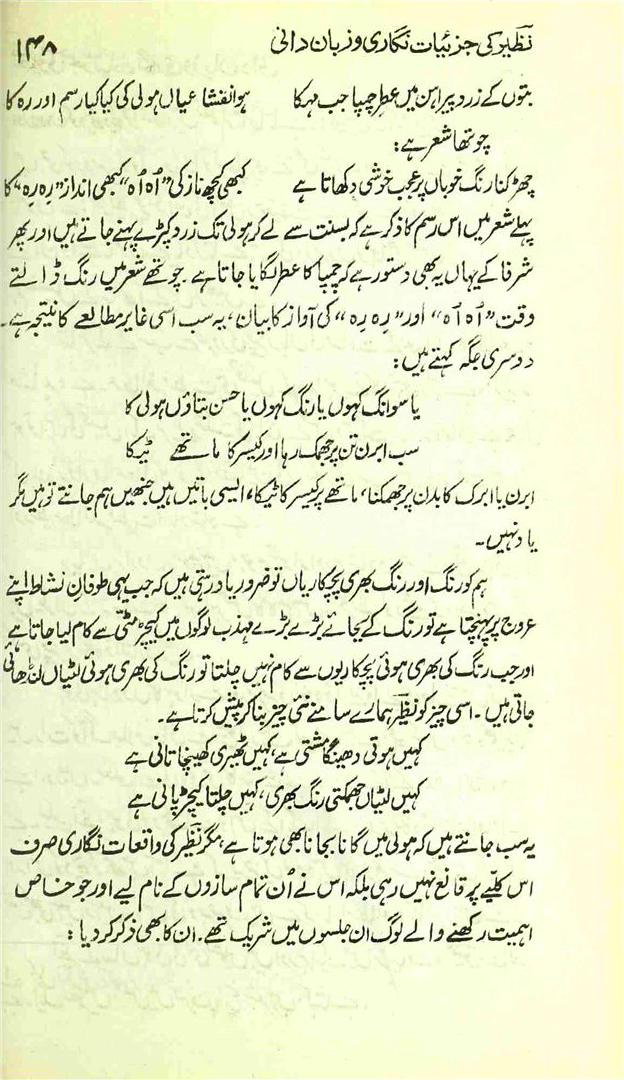 نظیر کی جزئیات نگاری و زبان دانی ۱۴۸
بتوں کے زرد پیراہن میں عطر چمپا جب مہکا ہوا نقشا عیاں ہولی کی کیا کیا رسم اور رہ کا
چوتھا شعر ہے:
چھڑکنا رنگ خوباں پر عجب خوشی دکھاتا ہے کبھی کچھ ناز کی ”اُہ اُہ“ کبھی انداز ”رِہ رِہ“ کا
پہلے شعر میں اس رسم کا ذکر ہے کہ بسنت سے لے کر ہولی تک زرد کپڑے پہنے جاتے ہیں اور پھر
شرفا کے یہاں یہ بھی دستور ہے کہ چمپا کا عطر لگایا جاتا ہے۔ چوتھے شعر میں رنگ ڈالتے
وقت ”اُہ اُہ“ اور ”رِہ رِہ“ کی آواز کا بیان، یہ سب اسی غایر مطالعے کا نتیجہ ہے۔
دوسری جگہ کہتے ہیں:
یا سوانگ کہوں یا رنگ کہوں یا حسن بتاؤں ہولی کا
سب ابرن تن پر جھمک رہا اور کیسر کا ماتھے ٹیکا
ابرن یا ابرک کا بدن پر جھمکنا، ماتھے پر کیسر کا ٹیکا، ایسی باتیں ہیں جنھیں ہم جانتے تو ہیں مگر
یاد نہیں۔
ہم کو رنگ اور رنگ بھری پچکاریاں تو ضرور یاد رہتی ہیں کہ جب یہی طوفانِ نشاط اپنے
عروج پر پہنچتا ہے تو رنگ کے بجائے بڑے بڑے مہذب لوگوں میں کیچڑ مٹی سے کام لیا جاتا ہے
اور جب رنگ کی بھری ہوئی پچکاریوں سے کام نہیں چلتا تو رنگ کی بھری ہوئی لٹیاں لنڈھائی
جاتی ہیں۔ اسی چیز کو نظیر ہمارے سامنے نئی چیز بنا کر پیش کرتا ہے۔
کہیں ہوتی دھینگا مشتی ہے، کہیں ٹھیری کھینچا تانی ہے
کہیں لٹیاں جھمکتی رنگ بھری، کہیں چلتا کیچڑ پانی ہے
یہ سب جانتے ہیں کہ ہولی میں گانا بجانا بھی ہوتا ہے، مگر نظیر کی واقعات نگاری صرف
اس کلیے پر قانع نہیں رہی بلکہ اس نے اُن تمام سازوں کے نام لیے اور جو خاص
اہمیت رکھنے والے لوگ ان جلسوں میں شریک تھے۔ ان کا بھی ذکر کر دیا: